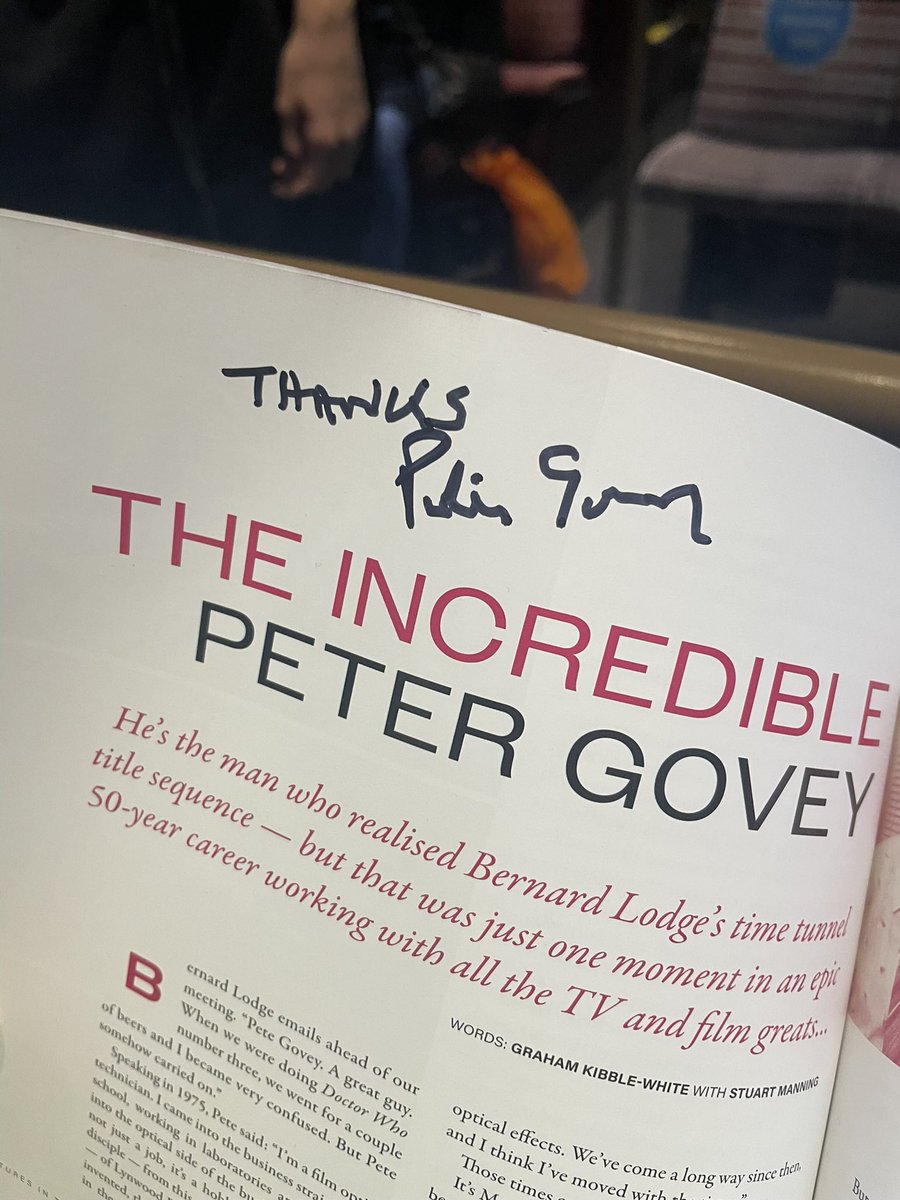 THANKS
Peter Govey
THE INCREDIBLE
PETER GOVEY
He's the man who realised Bernard Lodge's time tunnel
title sequence — but that was just one moment in an epic
50-year career working with all the TV and film greats...
WORDS: GRAHAM KIBBLE-WHITE WITH STUART MANNING
Bernard Lodge emails ahead of our
meeting. "Pete Govey. A great guy.
When we were doing Doctor Who
number three, we went for a couple
of beers and I became very confused. But Pete
somehow carried on."
Speaking in 1975, Pete said: "I'm a film
technician. I came into the business
school, working in laboratories
into the optical side of the
not just a job, it's a
disciple — from this
— of Lynwood
invented,
in the
optical effects. We've come a long way since then,
and I think I've moved with
Those times
It's